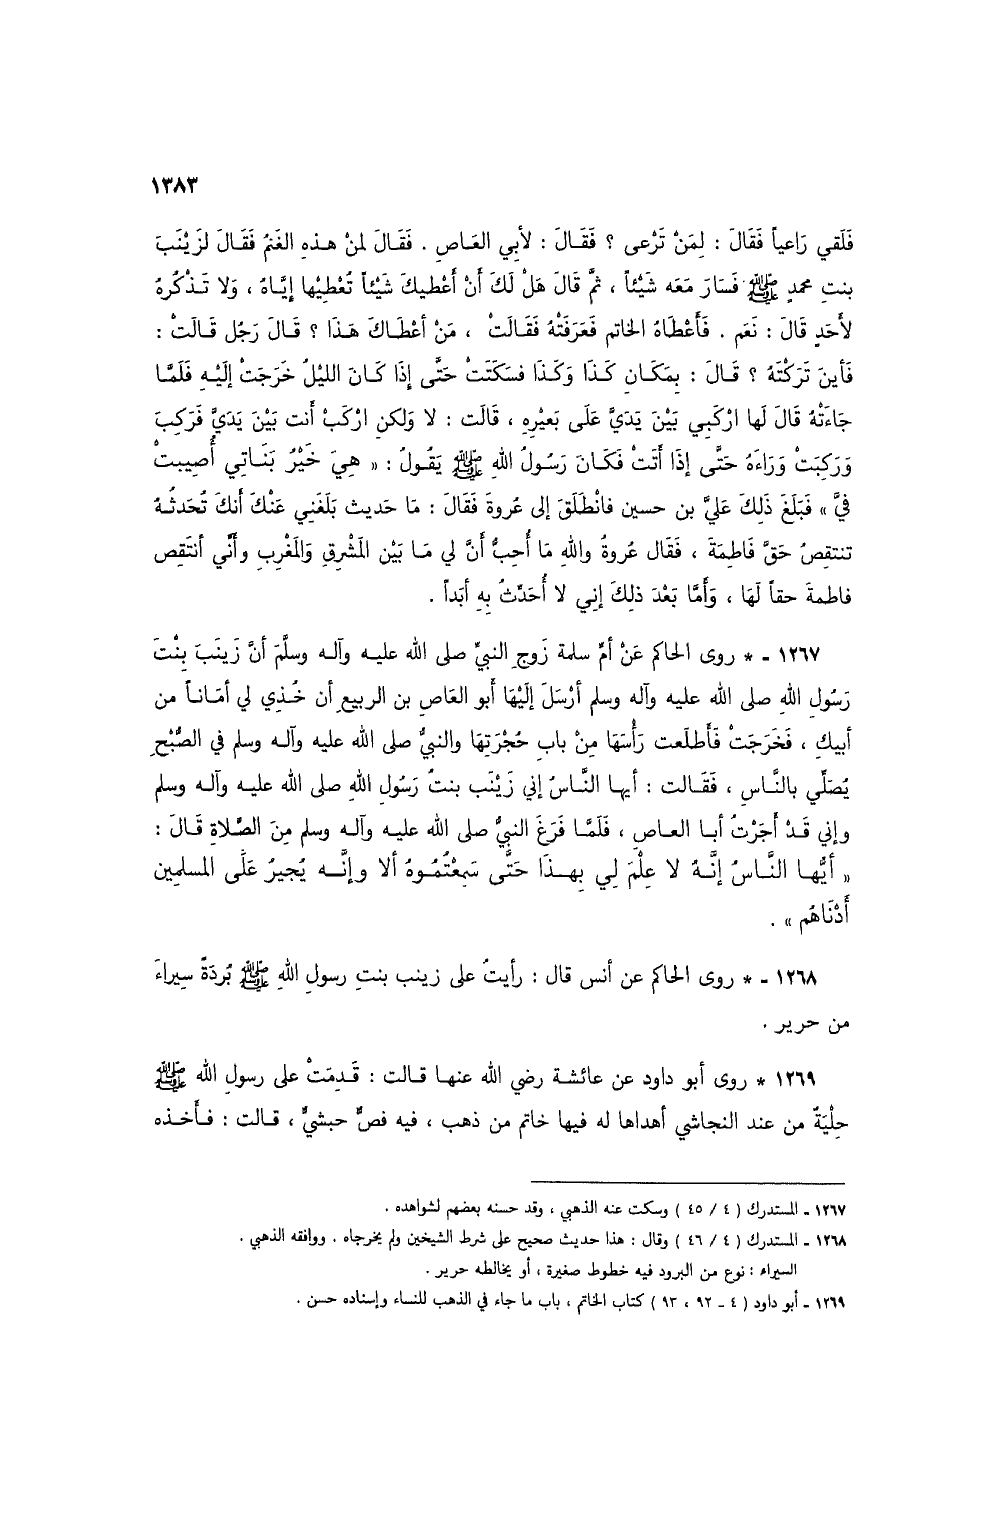 ١٣٨٣
فَلَقي رَاعياً فَقَالَ : لِمَنْ تَرْعى ؟ فَقَـالَ : لأبي العَـاصِ . فَقَـالَ لمنْ هـذهِ الغَنمُ فَقَـالَ لزَيْنَبَ
بنتِ محمدٍ ﷺ فَسَارَ مَعَه شَيْئاً ، ثمَّ قَالَ هَلْ لكَ أَنْ أَعْطيكَ شَيْئاً تُعْطِيْها إيَّـاهُ ، وَلا تَـذْكُرهُ
لأَحَدٍ قَالَ : نَعَم . فَأَعْطَاهُ الخاتم فَعَرَفَتْهُ فَقَـالَتْ ، مَنْ أعْطَـاكَ هَـذَا ؟ قَـالَ رَجُل قَـالَتْ :
فَأينَ تَرَكْتَهُ ؟ قَـالَ : بِمَكَـانِ كَـذَا وَكَـذَا فسَكَتَتْ حَتَّى إِذَا كَـانَ الليْلُ خَرَجَتْ إلَيْـهِ فَلَمَّـا
جَاءَتْهُ قَالَ لَها ارْكَبِي بَيْنَ يَدَيَّ عَلَى بَعيْرِهِ ، قَالَت : لا وَلكن ارْكَبْ أَنت بَيْنَ يَدَيَّ فَرَكِبَ
وَرَكِبَتْ وَرَاءَهُ حَتَّى إذَا أَتَتْ فَكَـانَ رَسُولُ اللهِ ﷺ يَقُولُ : « هِيَ خَيْرُ بَنَـاتِي أُصِيبتْ
فيَّ » فَبَلَغَ ذَلِكَ عَليَّ بن حسين فانْطَلَقَ إلى عُروةَ فَقَالَ : مَا حَديث بَلَغَنِي عَنْكَ أنكَ تُحَدثُـهُ
تنتقِصُ حَقَّ فَاطِمَةَ ، فَقَال عُروةُ واللهِ مَا أُحِبُّ أَنَّ لي مَـا بَيْن المَشْرِقِ وَالمَغْرِبِ وأنِّي أنتَقِص
فاطمةَ حقاً لَهَا ، وَأَمَّا بَعْدَ ذلِكَ إنِي لا أُحَدِّثُ بِهِ أبَداً .
١٢٦٧ ـ * روى الحاكم عَنْ أمّ سلمة زَوجِ النبيِّ صلى الله عليـه وآلـه وسلَّمَ أنَّ زَينَبَ بِنْتَ
رَسُولِ اللهِ صلى الله عليه وآله وسلم أرْسَلَ إلَيْهَا أبو العَاصِ بن الربيعِ أن خُـذِي لي أمَانـاً من
أبيكِ ، فَخَرَجَتْ فَأَطلَعت رَأْسَهَا مِنْ بابِ حُجْرَتِهَا والنبيُّ صلى الله عليه وآلـه وسلم في الصُّبْحِ
يُصَلِّي بالنَّاسِ ، فَقَـالت : أيهـا النَّاسُ إني زَيْنَب بنتُ رَسُولِ اللهِ صلى الله عليـه وآلـه وسلم
وإني قَـدْ أَجَرْتُ أبـا العـاصِ ، فَلَمَّـا فَرَغَ النبيُّ صلى الله عليـه وآلـه وسلم مِنَ الصَّلاةِ قَـالَ :
« أيُّهـا النَّـاسُ إنَّـهُ لا عِلْمَ لِي بِهـذَا حَتَّى سَمِعْتُمُوهُ ألا وإنَّـه يُجيرُ عَلَى المسلمين
أَدْنَاهُم » .
١٢٦٨ ـ * روى الحاكم عن أنس قال : رأيتُ على زينب بنتِ رسولِ اللهِ ﷺ بُردَةً سِيراءَ
من حرير .
١٢٦٩ * روى أبو داود عن عائشة رضي الله عنهـا قـالت : قَـدِمَتْ على رسولِ الله ﷺ
حِلْيَةٌ من عند النجاشي أهداها له فيها خاتم من ذهب ، فيه فصٌّ حبشيٌّ ، قـالت : فـأَخـذه
١٢٦٧ ـ المستدرك ( ٤ / ٤٥ ) وسكت عنه الذهبي ، وقد حسنه بعضهم لشواهده .
١٢٦٨ ـ المستدرك ( ٤ / ٤٦ ) وقال : هذا حديث صحيح على شرط الشيخين ولم يخرجاه . ووافقه الذهبي .
السيراء : نوع من البرود فيه خطوط صغيرة ، أو يخالطه حرير .
١٢٦٩ ـ أبو داود ( ٤ ـ ٩٢ ، ٩٣ ) كتاب الخاتم ، باب ما جاء في الذهب للنساء وإسناده حسن .